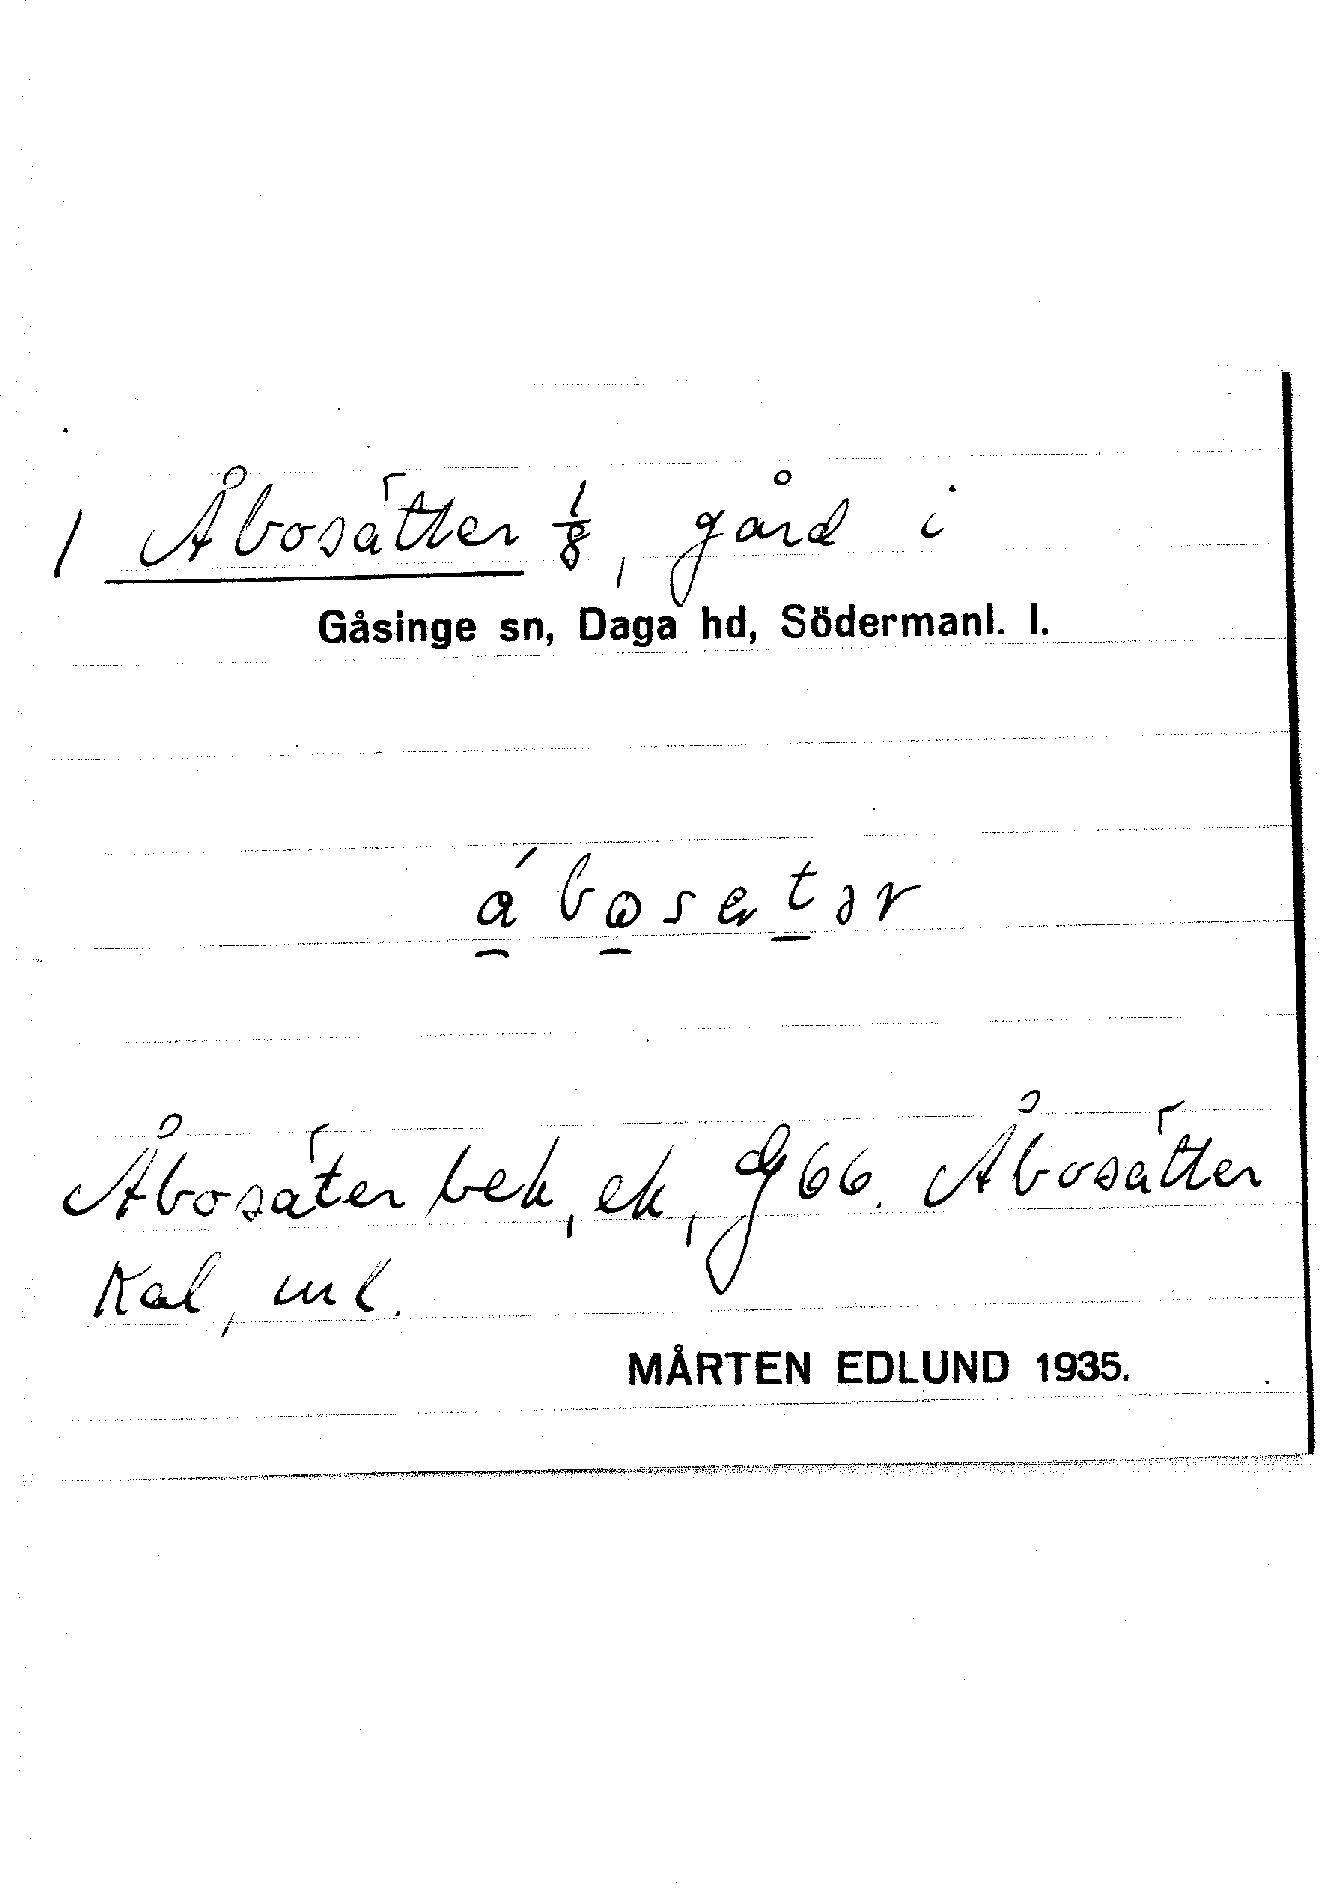 1 Åbosätter 1/8, gård i
Gåsinge sn, Daga hd, Södermanl. l.
Åbosäter bek, ek, Dg 66. Åbosätter
Kal, ml.
MÅRTEN EDLUND 1935.